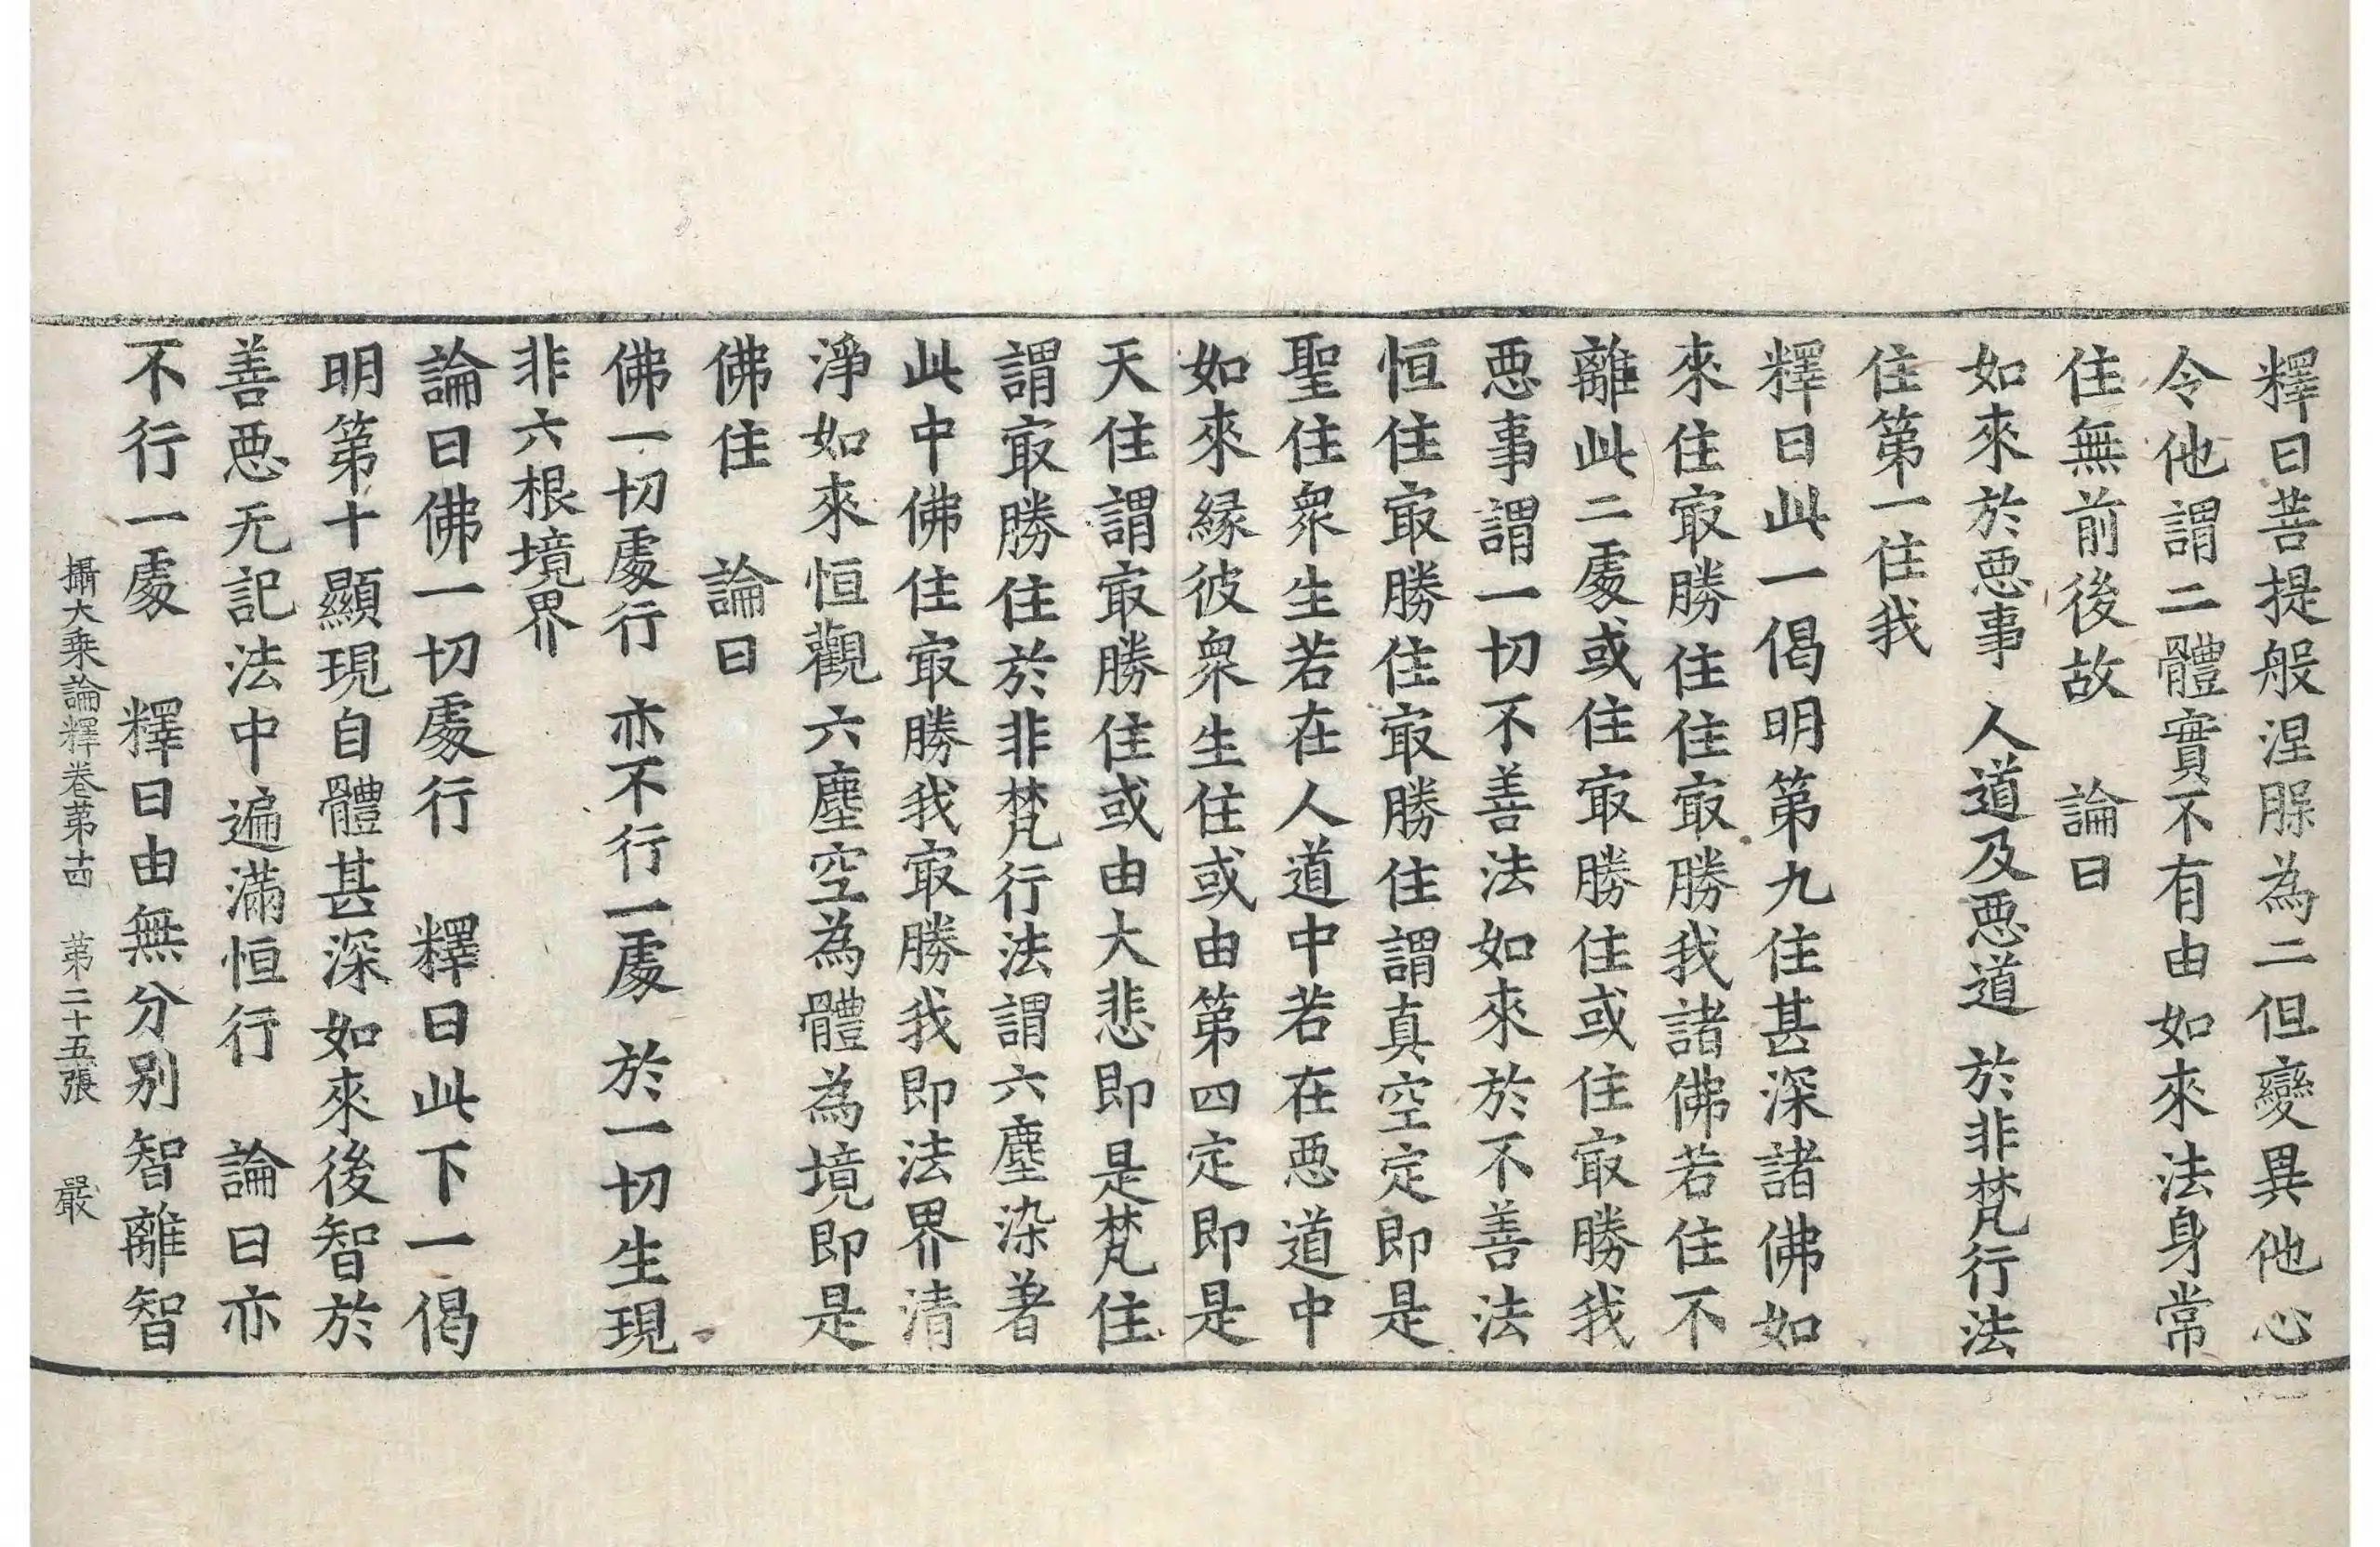 釋曰菩提般涅脲為二但變異他心
令他謂二體實不有由如來法身常
住無前後故　論曰
如來於惡事　人道及惡道　於非梵行法
住第一住我
釋曰此一偈明第九住甚深諸佛如
來住㝡勝住住㝡勝我諸佛若住不
離此二處或住㝡勝住或住㝡勝我
惡事謂一切不善法如來於不善法
恒住㝡勝住㝡勝住謂真空定即是
聖住衆生若在人道中若在惡道中
如來緣彼衆生住或由第四定即是
天住謂㝡勝住或由大悲即是梵住
謂㝡勝住於非梵行法謂六塵染著
此中佛住㝡勝我㝡勝我即法界清
淨如來恒觀六塵空為體為境即是
佛住　論曰
佛一切處行　亦不行一處　於一切生現
非六根境界
論曰佛一切處行　釋曰此下一偈
明第十顯現自體甚深如來後智於
善惡无記法中遍滿恒行　論曰亦
不行一處　釋曰由無分別智離智
攝大乘論釋卷第十四　第二十五張　嚴